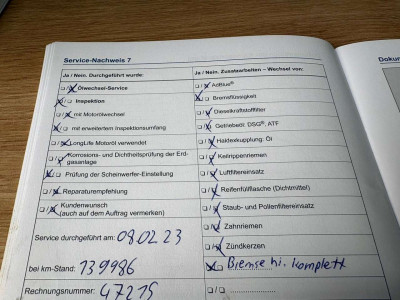 Service-Nachweis 7
Ja / Nein. Durchgeführt wurde:
Ölwechsel-Service
Inspektion
mit Motorölwechsel
mit erweitertem Inspektionsumfang
LongLife Motoröl verwendet
Korrosions- und Dichtheitsprüfung der Erd-
gasanlage
Prüfung der Scheinwerfer-Einstellung
Reparaturempfehlung
Kundenwunsch
(auch auf dem Auftrag vermerken)
Service durchgeführt am: 08.02.23
bei km-Stand: 139986
Rechnungsnummer: 47215
Ja / Nein. Zusatzarbeiten – Wechsel von:
AdBlue®
Bremsflüssigkeit
Dieselkraftstofffilter
Getriebeöl: DSG®, ATF
Haldexkupplung: Öl
Keilrippenriemen
Luftfiltereinsatz
Reifenfüllflasche (Dichtmittel)
Staub- und Pollenfiltereinsatz
Zahnriemen
Zündkerzen
Bremse hi. komplett
Dokum